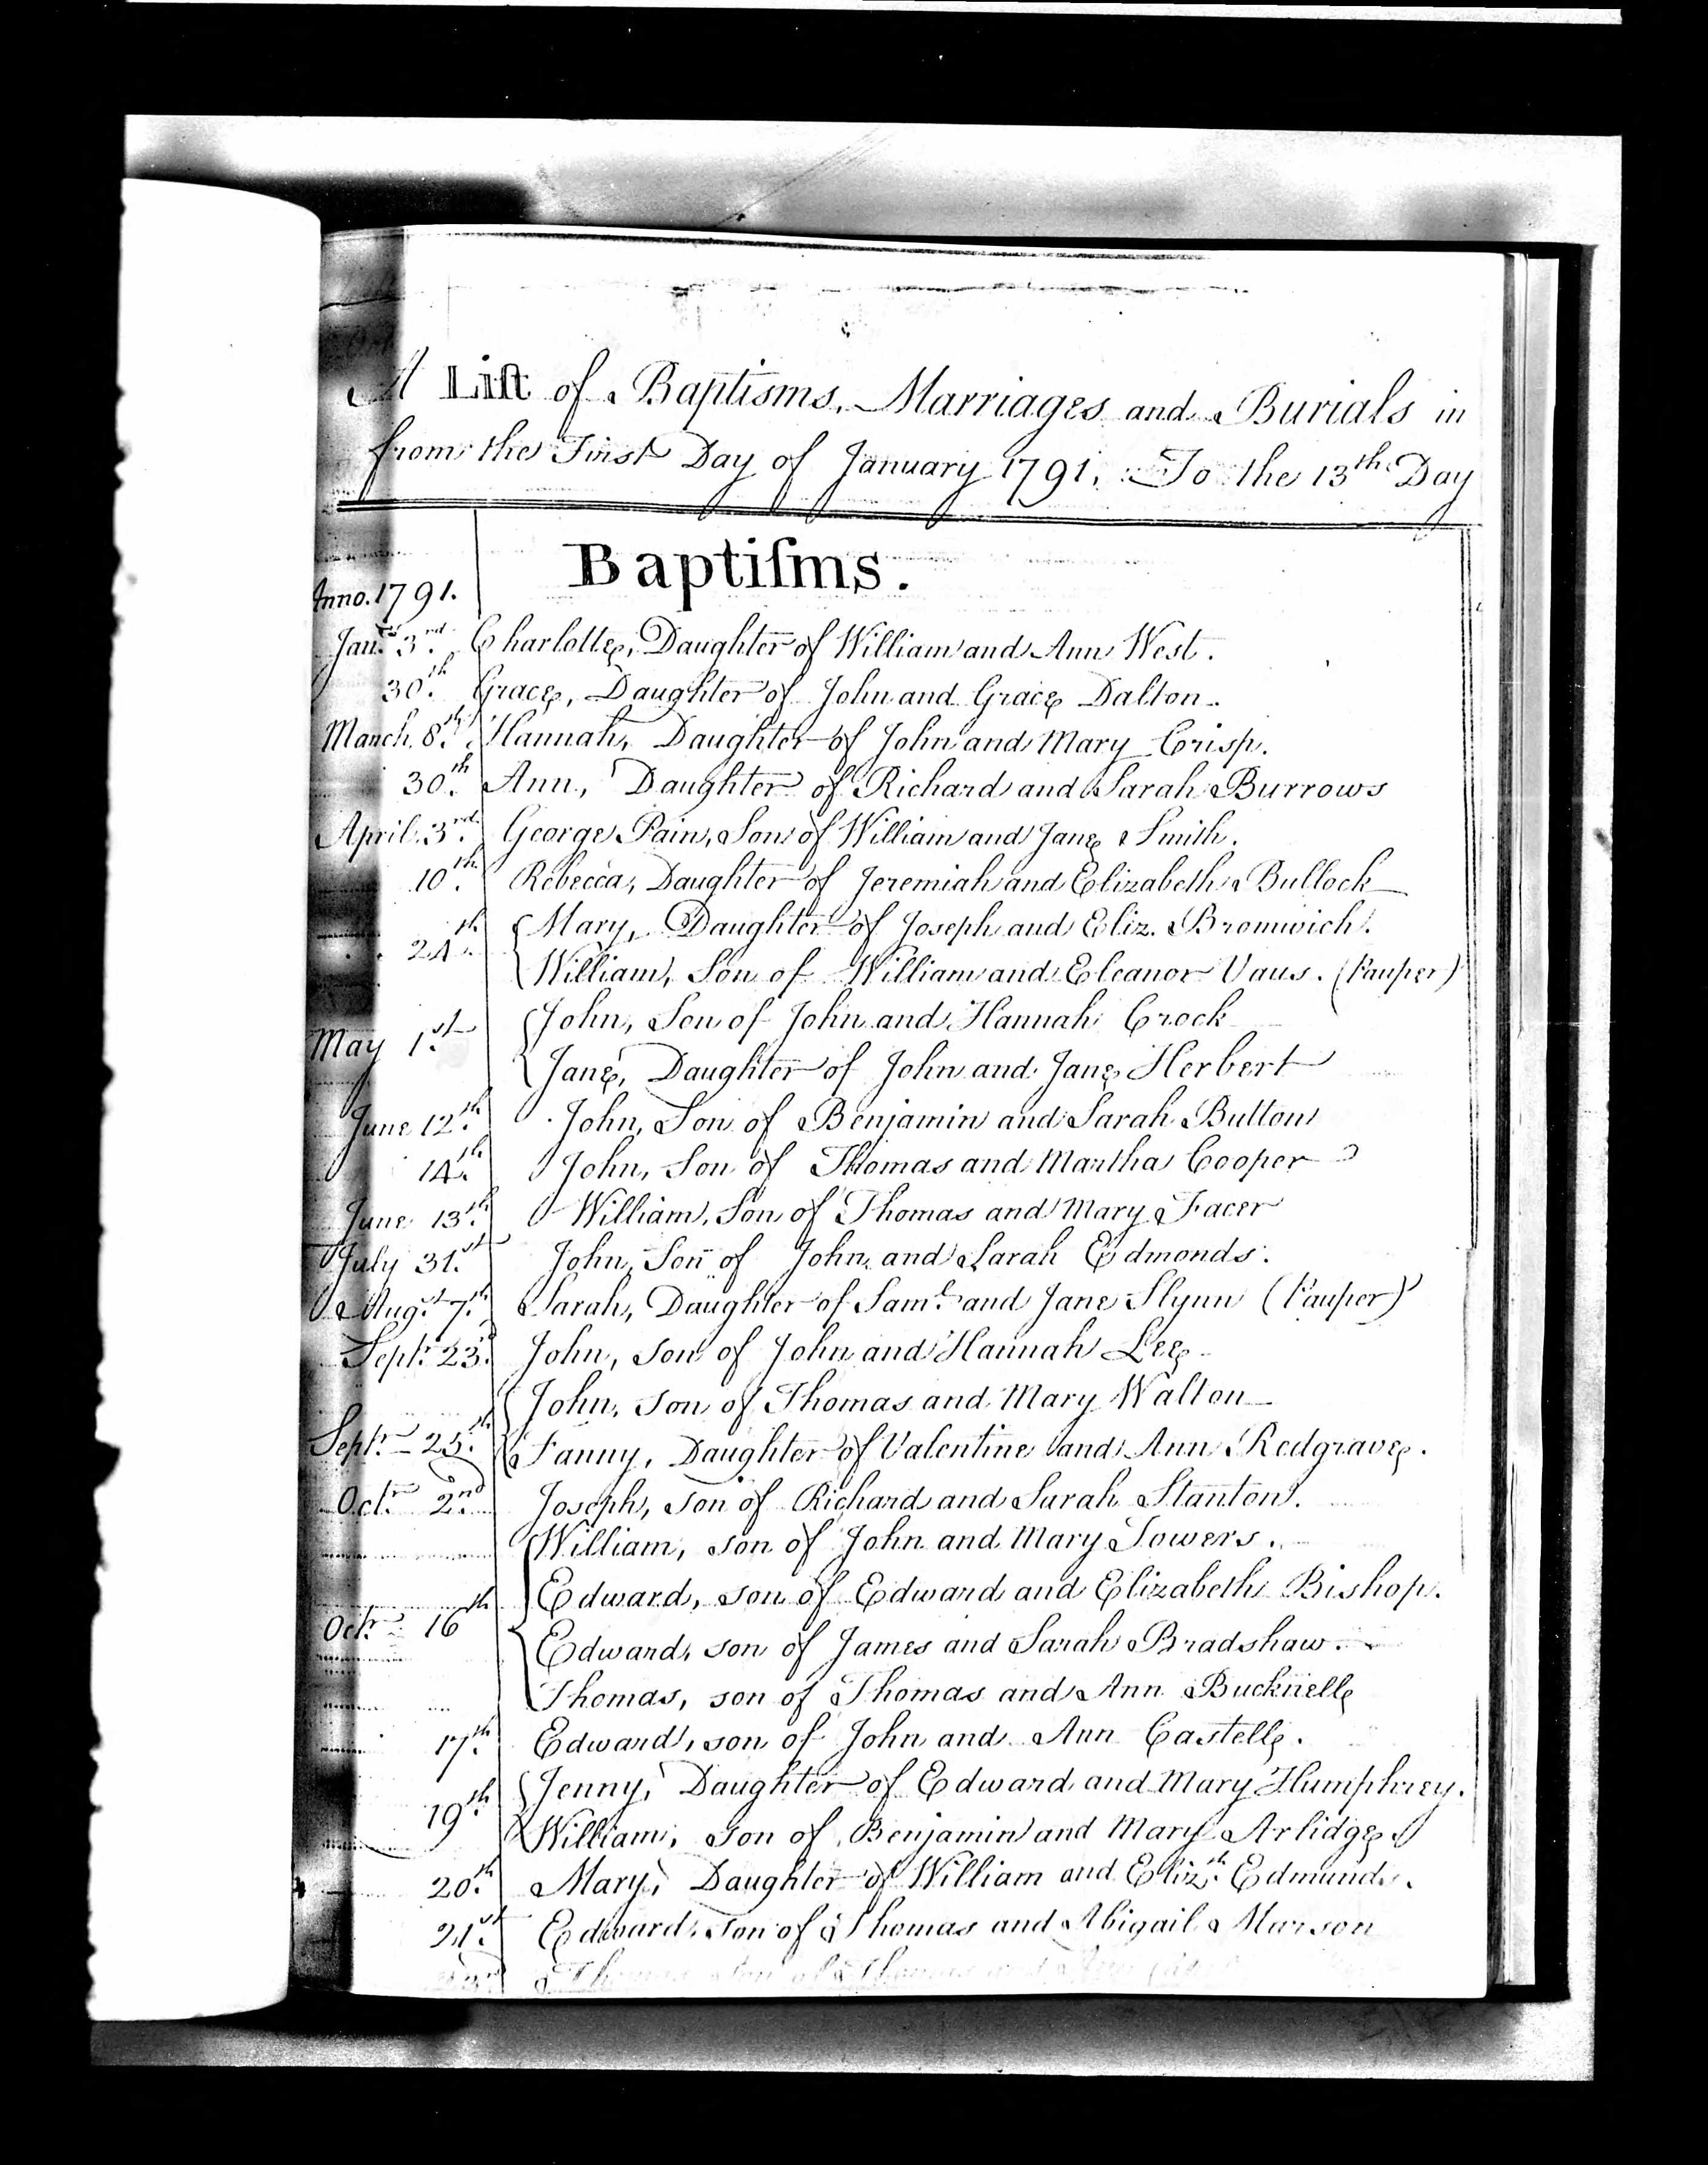 A Liſt of Baptisms, Marriages and Burials in
from the First Day of January 1791, To the 13th Day
Baptiſms.
Anno. 1791.
Jany 3rd Charlotte, Daughter of William and Ann West.
30th Grace, Daughter of John and Grace Dalton.
March 8th Hannah, Daughter of John and Mary Crisp.
30th Ann, Daughter of Richard and Sarah Burrows
April 3rd George Pain, Son of William and Jane Smith.
10th Rebecca, Daughter of Jeremiah and Elizabeth Bullock
Mary, Daughter of Joseph and Eliz. Bromwich.
24th
William, Son of William and Eleanor Vaus. (Pauper)
John, Son of John and Hannah Crock
May 1st
Jane, Daughter of John and Jane Herbert
June 12th John, Son of Benjamin and Sarah Button
14th John, Son of Thomas and Martha Cooper
June 13th William, Son of Thomas and Mary Facer
July 31st John, Son of John and Sarah Edmonds.
Augst 7th Sarah, Daughter of Saml and Jane Slynn (Pauper)
Septr 23d John, Son of John and Hannah Lee
John, Son of Thomas and Mary Walton
Septr 25th Fanny, Daughter of Valentine and Ann Redgrave.
Octr 2nd Joseph, Son of Richard and Sarah Stanton.
William, son of John and Mary Towers.
Edward, son of Edward and Elizabeth Bishop.
Octr 16th
Edward, son of James and Sarah Bradshaw.
Thomas, son of Thomas and Ann Bucknell
17th Edward, son of John and Ann Castell.
Jenny, Daughter of Edward and Mary Humphrey.
19th
William, Son of Benjamin and Mary Arlidge.
20th Mary, Daughter of William and Elizth Edmunds.
21st Edward, Son of Thomas and Abigail Marson
Thomas Son of Thomas and